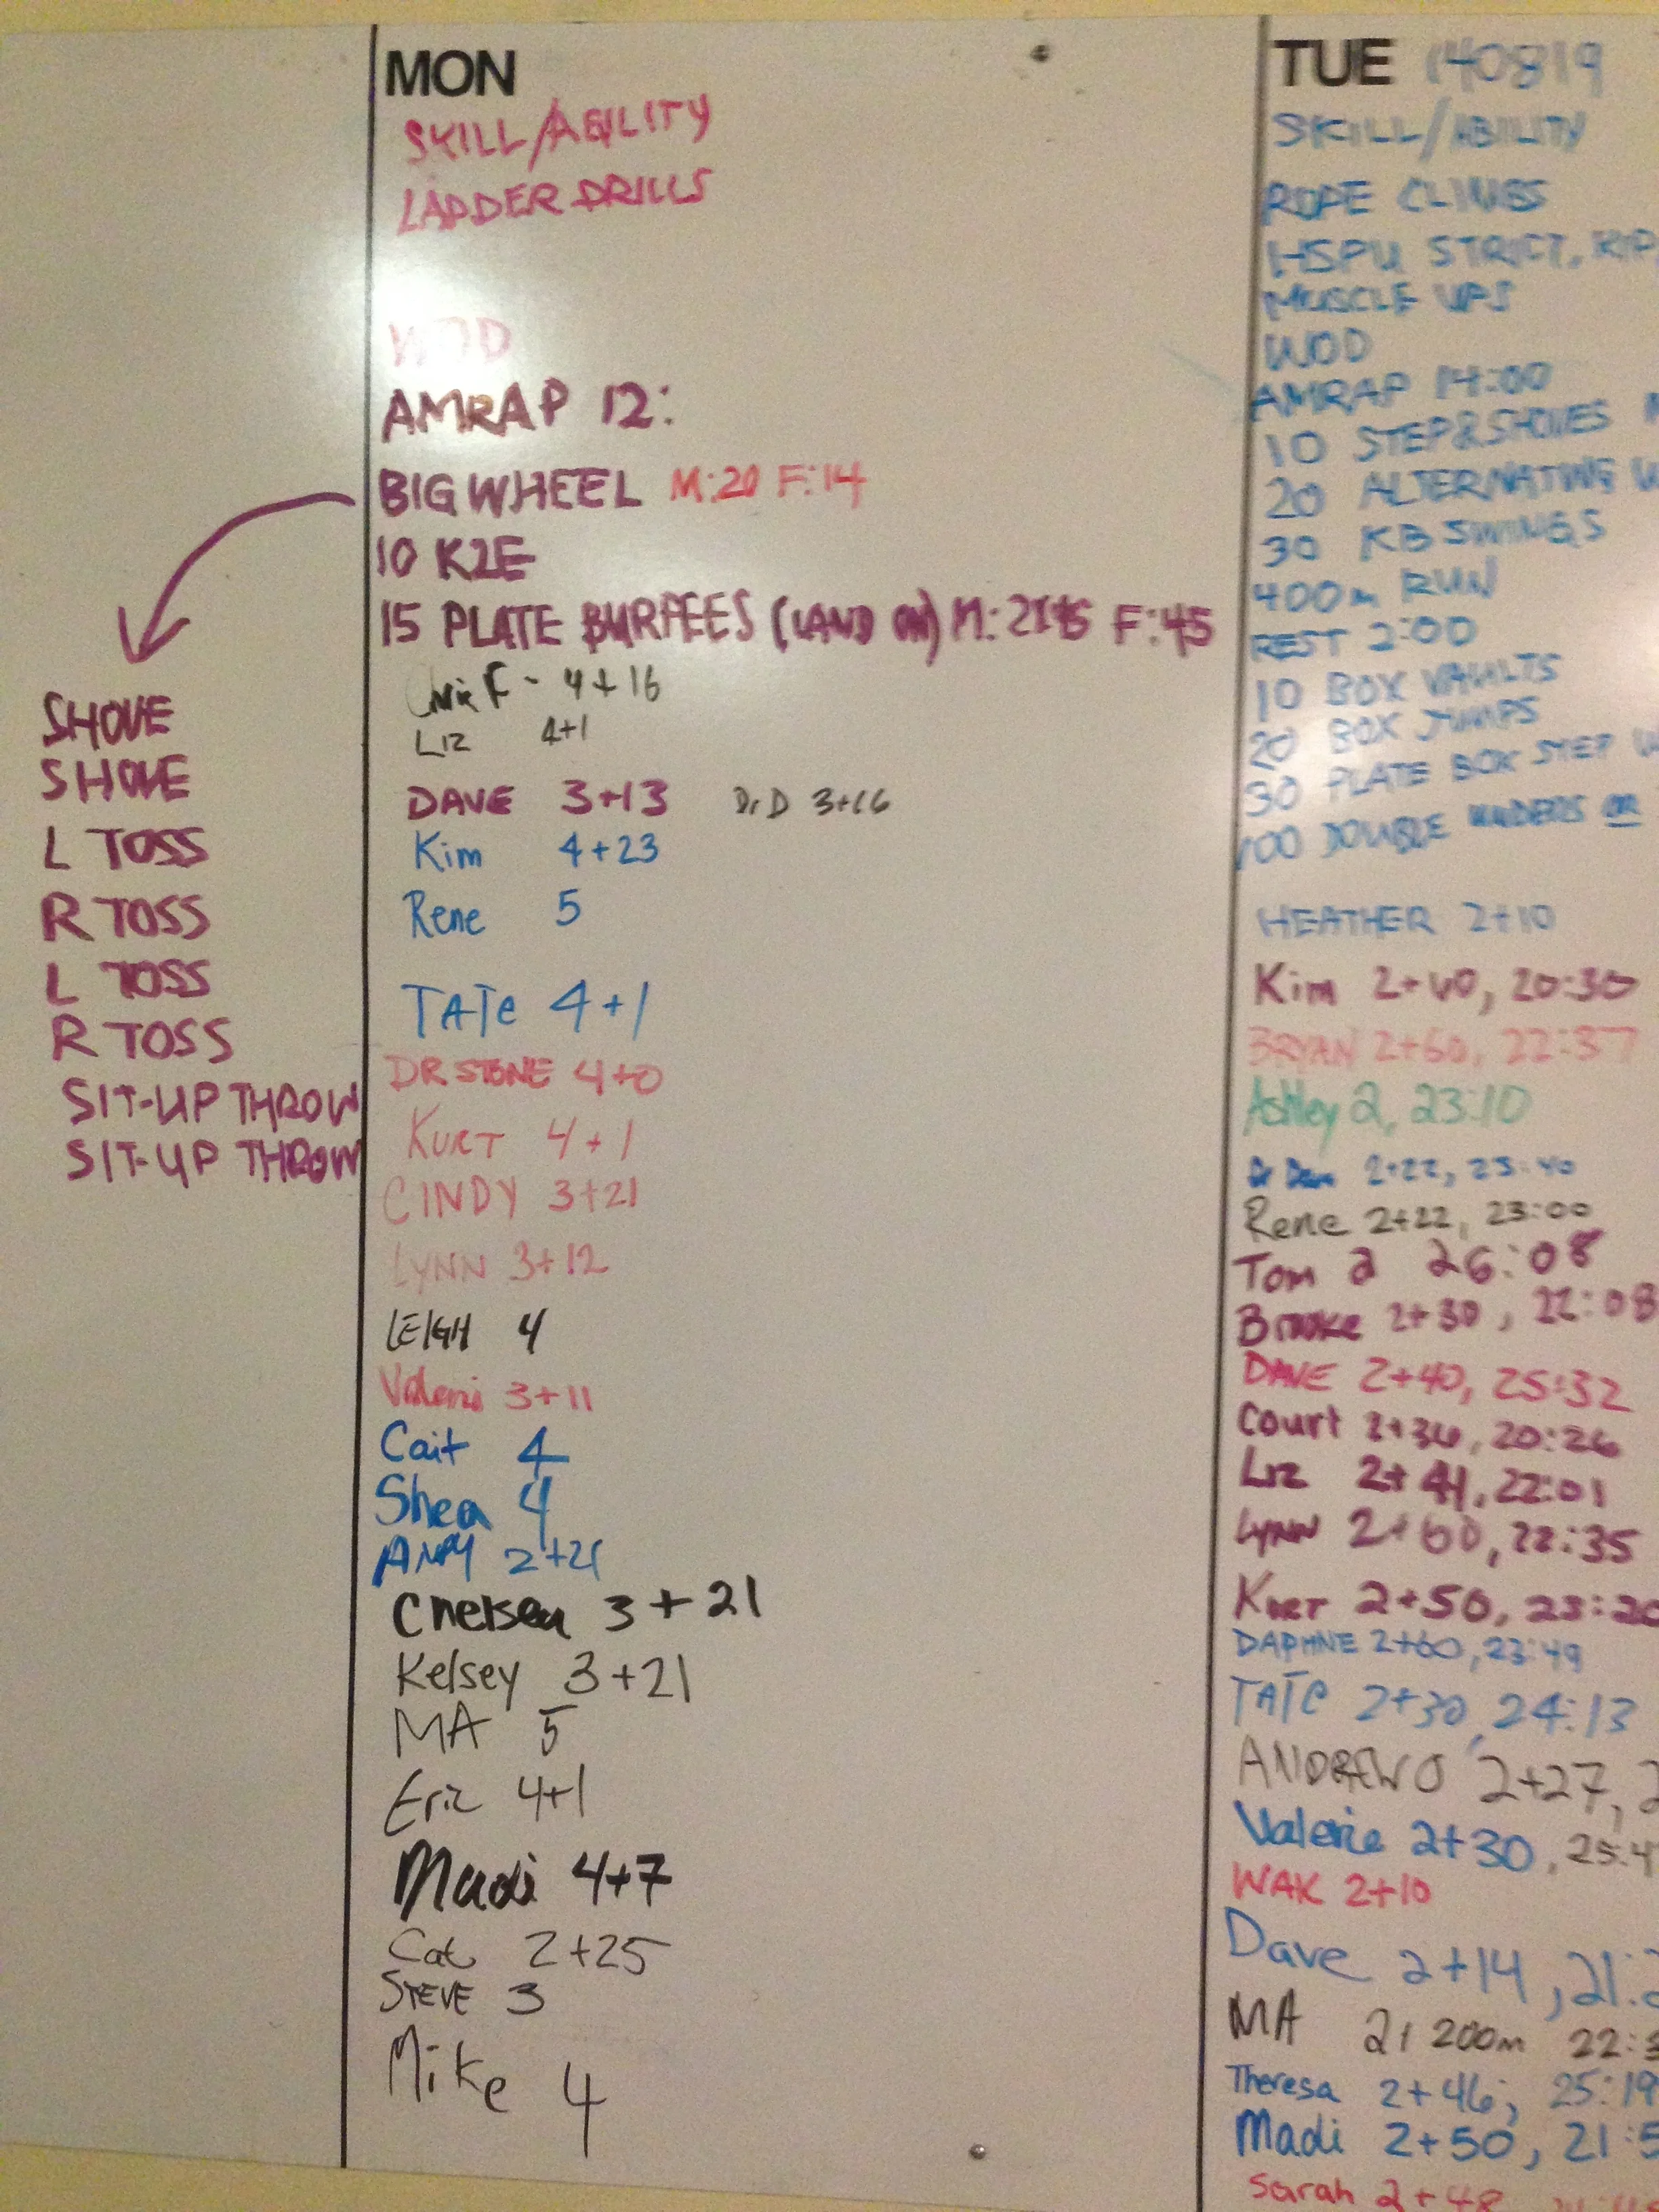 MON
SKILL/AGILITY
LADDER DRILLS
WOD
AMRAP 12:
BIG WHEEL M:20 F:14
10 K2E
15 PLATE BURPEES (LAND ON) M: F:45
SHOVE
SHOVE
L TOSS
R TOSS
L TOSS
R TOSS
SIT-UP THROW
SIT-UP THROW
Chris F - 4+16
LIZ 4+1
DAVE 3+13 Dr D 3+16
Kim 4+23
Rene 5
TATE 4+1
DR STONE 4+0
KURT 4+1
CINDY 3+21
LYNN 3+12
LEIGH 4
Valerie 3+11
Cait 4
Shea 4
2+21
Chelsea 3+21
Kelsey 3+21
MA 5
Eric 4+1
Madi 4+7
Cat 2+25
STEVE 3
Mike 4
TUE 140819
SKILL/ABILITY
ROPE CLIMBS
HSPU STRICT, KIP
MUSCLE UPS
WOD
AMRAP 14:00
10 STEP&SHOVES
20 ALTERNATING
30 KB SWINGS
400m RUN
REST 2:00
10 BOX VAULTS
20 BOX JUMPS
30 PLATE BOX STEP
100 DOUBLE UNDERS OR
HEATHER 2+10
Kim 20:30
BRYAN 2+60, 22:37
Ashley 2, 23:10
Dr Dave 2+22,
Rene 2+22, 23:00
Tom 2 26:08
Brooke 2+30, 22:08
DAVE 2+40, 25:32
Court 2+36, 20:26
Liz 2+41, 22:01
LYNN 2+60, 22:35
KURT 2+50, 23:20
DAPHNE 2+60, 23:49
TATE 2+30, 24:13
ANDREW O 2+27,
Valerie 2+30, 25:4
WAK 2+10
Dave 2+14, 21:
MA 2+ 200m 22:3
Theresa 2+46, 25:19
Madi 2+50, 21:5
Sarah 2+48